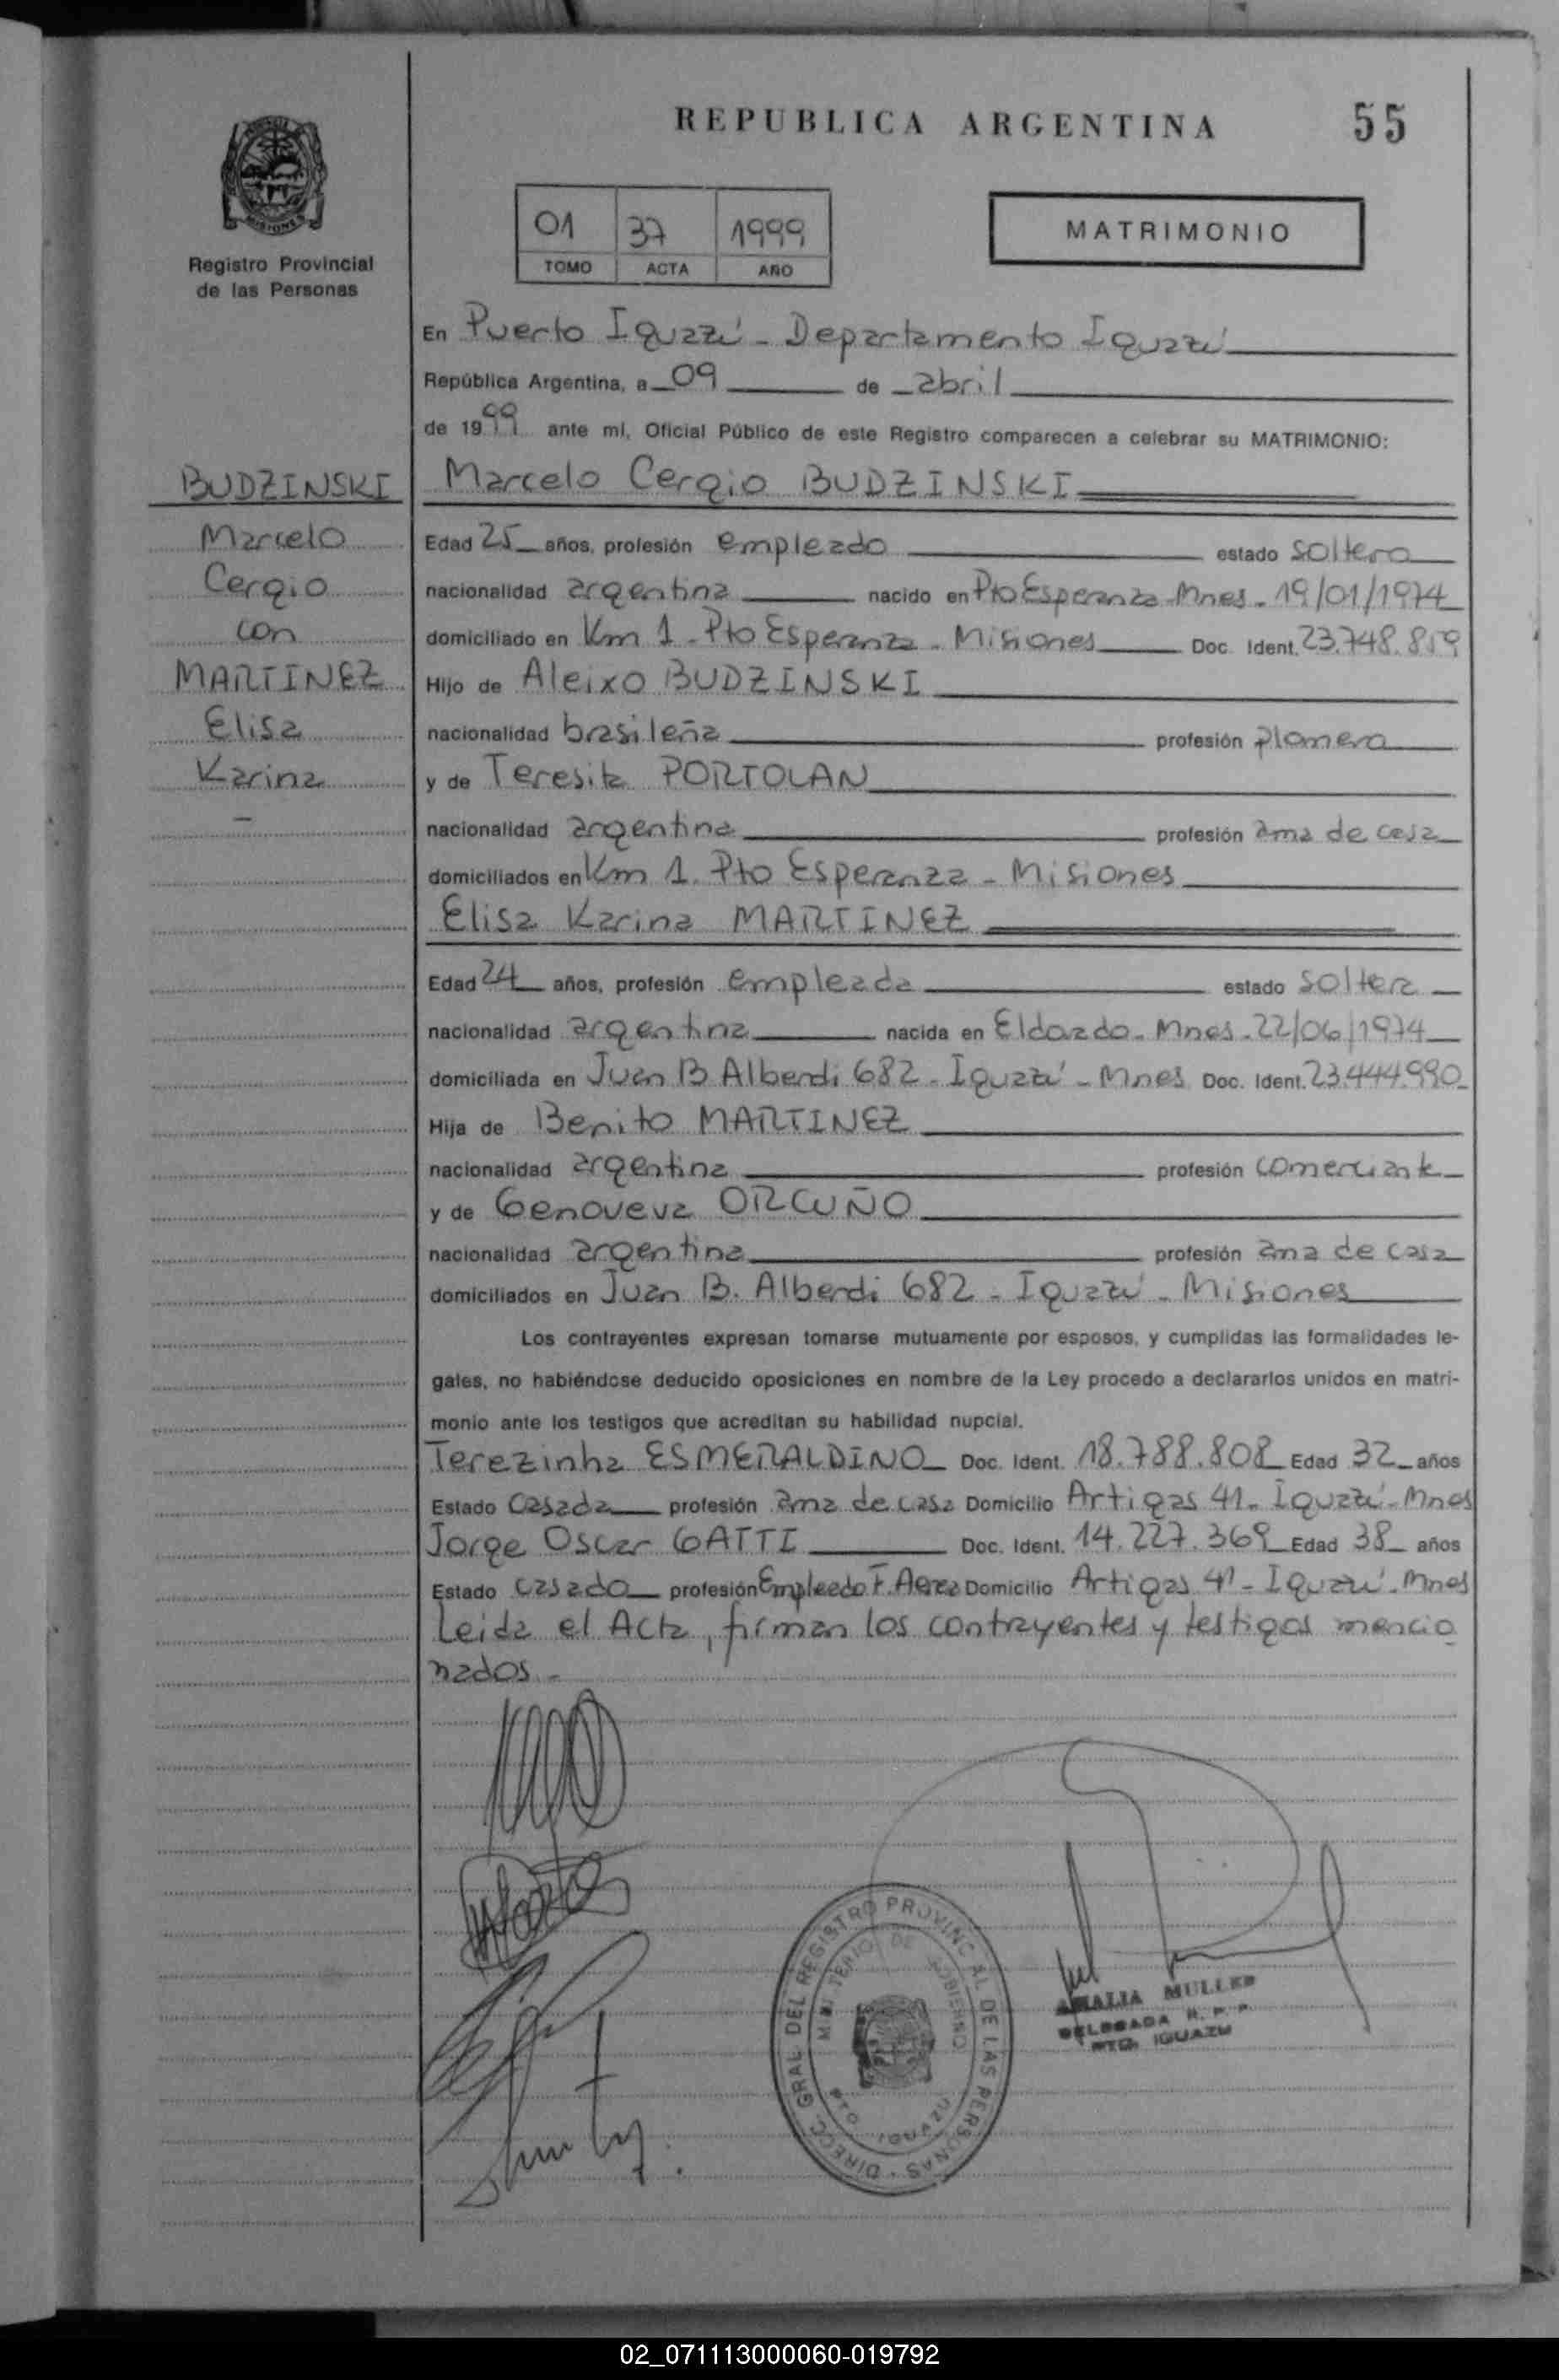 REPUBLICA ARGENTINA
55
Registro Provincial
de las Personas
01 37 1999
TOMO ACTA AÑO
MATRIMONIO
En Puerto Iguazú - Departamento Iguazú
República Argentina, a 09 de abril
de 1999 ante mí, Oficial Público de este Registro comparecen a celebrar su MATRIMONIO:
BUDZINSKI
Marcelo
Cergio
con
MARTINEZ
Elisa
Karina
-
Marcelo Cergio BUDZINSKI
Edad 25 años, profesión empleado estado soltero
nacionalidad argentina nacido en Pto Esperanza - Mnes - 19/01/1974
domiciliado en Km 1 - Pto Esperanza - Misiones Doc. Ident. 23.748.859
Hijo de Aleixo BUDZINSKI
nacionalidad brasileña profesión plomero
y de Teresita PORTOLAN
nacionalidad argentina profesión ama de casa
domiciliados en Km 1. Pto Esperanza - Misiones
Elisa Karina MARTINEZ
Edad 24 años, profesión empleada estado soltera
nacionalidad argentina nacida en Eldorado - Mnes - 22/06/1974
domiciliada en Juan B Alberdi 682 - Iguazú - Mnes Doc. Ident. 23.444.990
Hija de Benito MARTINEZ
nacionalidad argentina profesión comerciante
y de Genoveva ORCUÑO
nacionalidad argentina profesión ama de casa
domiciliados en Juan B. Alberdi 682 - Iguazú - Misiones
Los contrayentes expresan tomarse mutuamente por esposos, y cumplidas las formalidades le-
gales, no habiéndose deducido oposiciones en nombre de la Ley procedo a declararlos unidos en matri-
monio ante los testigos que acreditan su habilidad nupcial.
Terezinha ESMERALDINO Doc. Ident. 18.788.808 Edad 32 años
Estado casada profesión ama de casa Domicilio Artigas 41 - Iguazú - Mnes
Jorge Oscar GATTI Doc. Ident. 14.227.369 Edad 38 años
Estado casado profesión Empleado F. Aerea Domicilio Artigas 41 - Iguazú - Mnes
Leida el Acta, firman los contrayentes y testigos mencio
nados -
DIRECC. GRAL DEL REGISTRO PROVINCIAL DE LAS PERSONAS
MINISTERIO DE GOBIERNO
PTO. IGUAZU
AMALIA MULLER
DELEGADA R. P. P.
PTO. IGUAZU
02_071113000060-019792